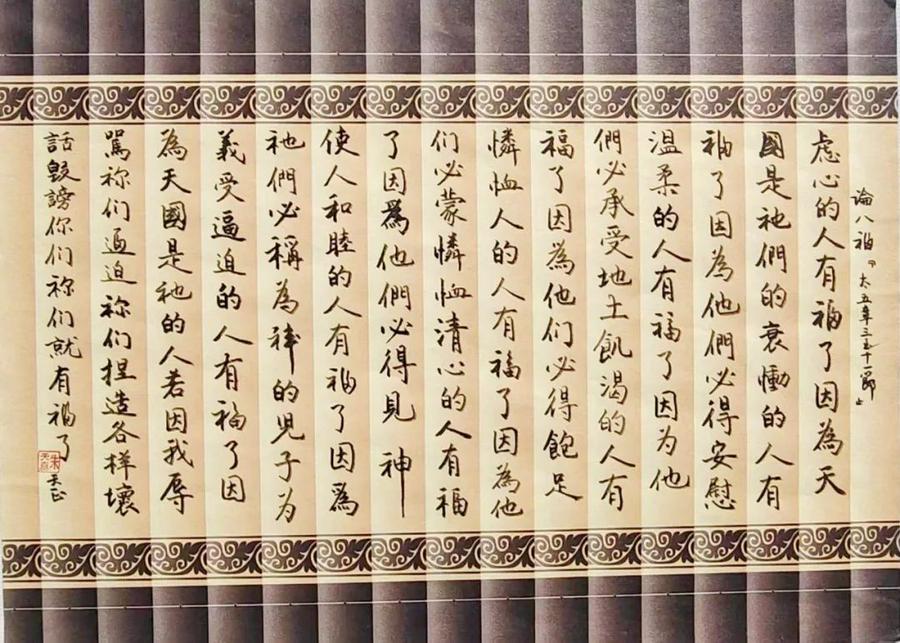 论八福『太五章三至十一節』
虚心的人有福了因為天
國是祂們的哀慟的人有
福了因為他們必得安慰
温柔的人有福了因为他
們必承受地土飢渴的人有
福了因為他们必得飽足
憐恤人的人有福了因為他
们必蒙憐恤清心的人有福
了因爲他們必得見神
使人和睦的人有福了因爲
祂們必稱為神的児子为
義受逼迫的人有福了因
為天國是祂的人若因我辱
罵祢们逼迫祢们捏造各样壞
話毀謗你们祢们就有福了
天正